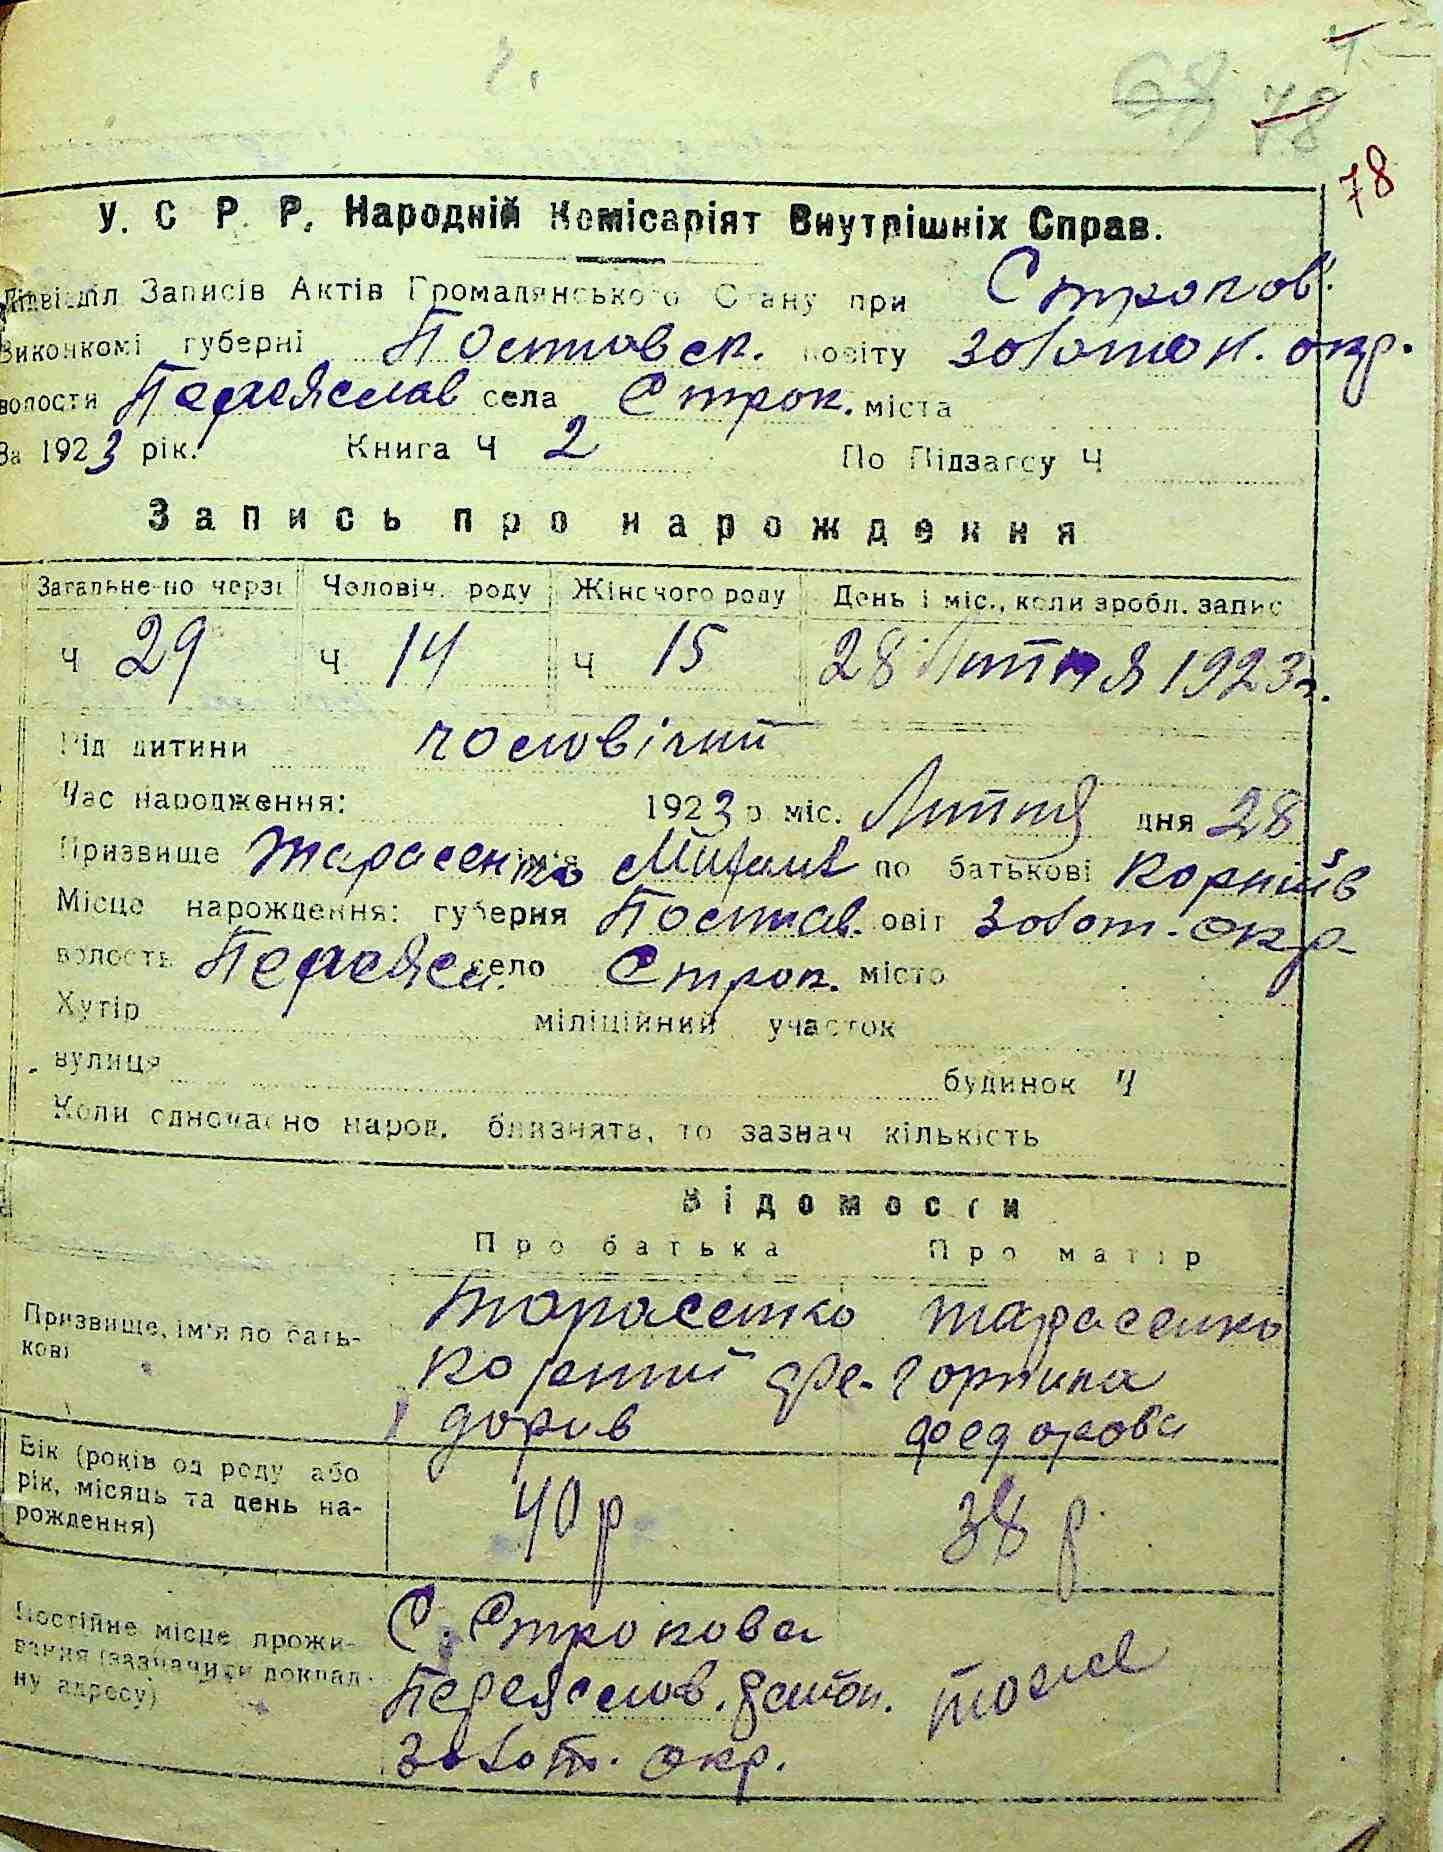 4.
68 78
78
У. С Р. Р. Народній Комісаріят Внутрішніх Справ.
Підвідділ Записів Актів Громадянського Стану при Строков.
Виконкомі губерні Полтавск. повіту Золотон. окр.
волости Переяслав села Строк. міста
За 1923 рік. Книга Ч 2 По Підзагсу Ч
Запись про народження
Загальне по черзі Чоловіч. роду Жіночого роду День і міс., коли зробл. запис
Ч 29 Ч 14 Ч 15 28 Липня 1923 г.
Рід дитини чоловічий
Час народження: 1923 р міс. Липня дня 28
Призвище Тарасенко ім'я по батькові Корніїв
Місце нарождення: губерня Полтав. овіт Золот. окр.
волость Переясл. село Строк. місто
Хутір міліційний участок
вулиця будинок Ч
Коли одночасно народ. близнята, то зазнач кількість
Відомости
Про батька Про матір
Призвище, ім'я по бать-
кові
Тарасенко Тарасенко
Корний Фе- Горпина
дорив Федорова
Вік (років од роду або
рік, місяць та день на-
рождення)
40 р 38 р.
Постійне місце прожи-
вання (зазначити доклад-
ну адресу)
С. Строкова
Переяслав. район. тоже
Золот. окр.